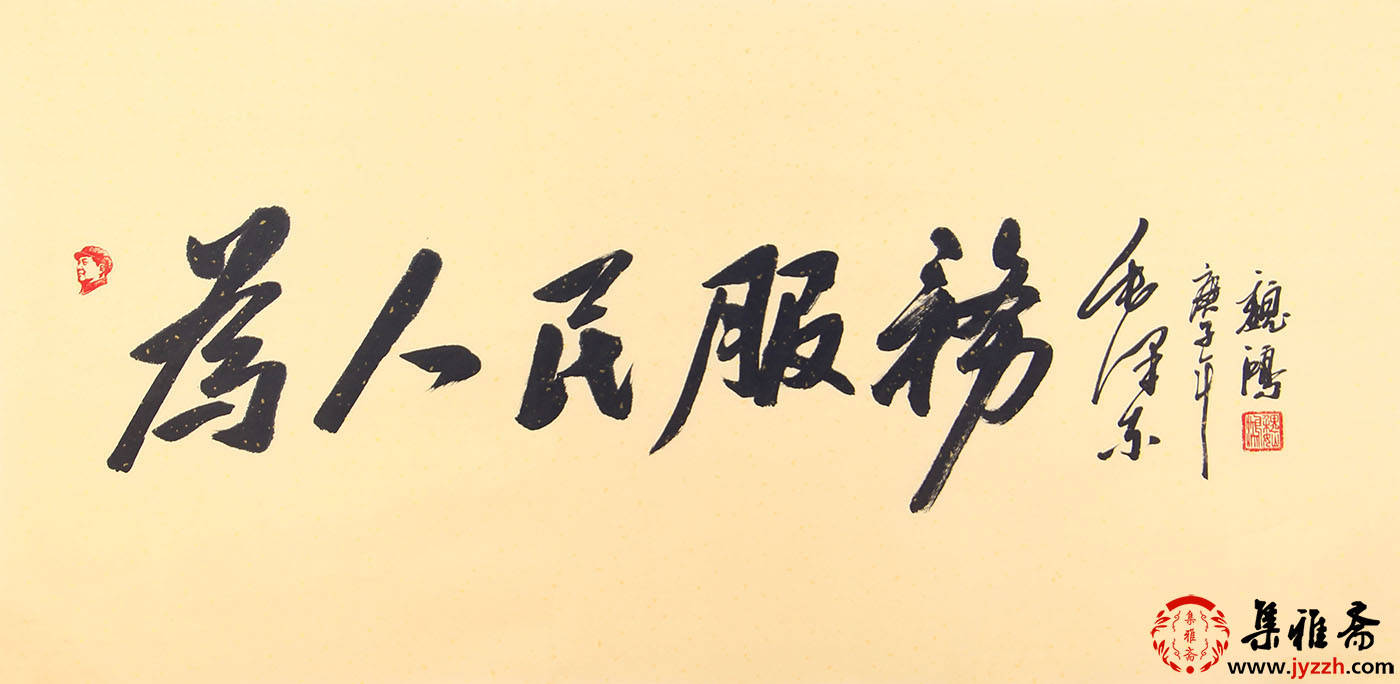 為人民服務
毛泽东
庚子年
魏鸿
集雅斋
集雅斋
www.jyzzh.com